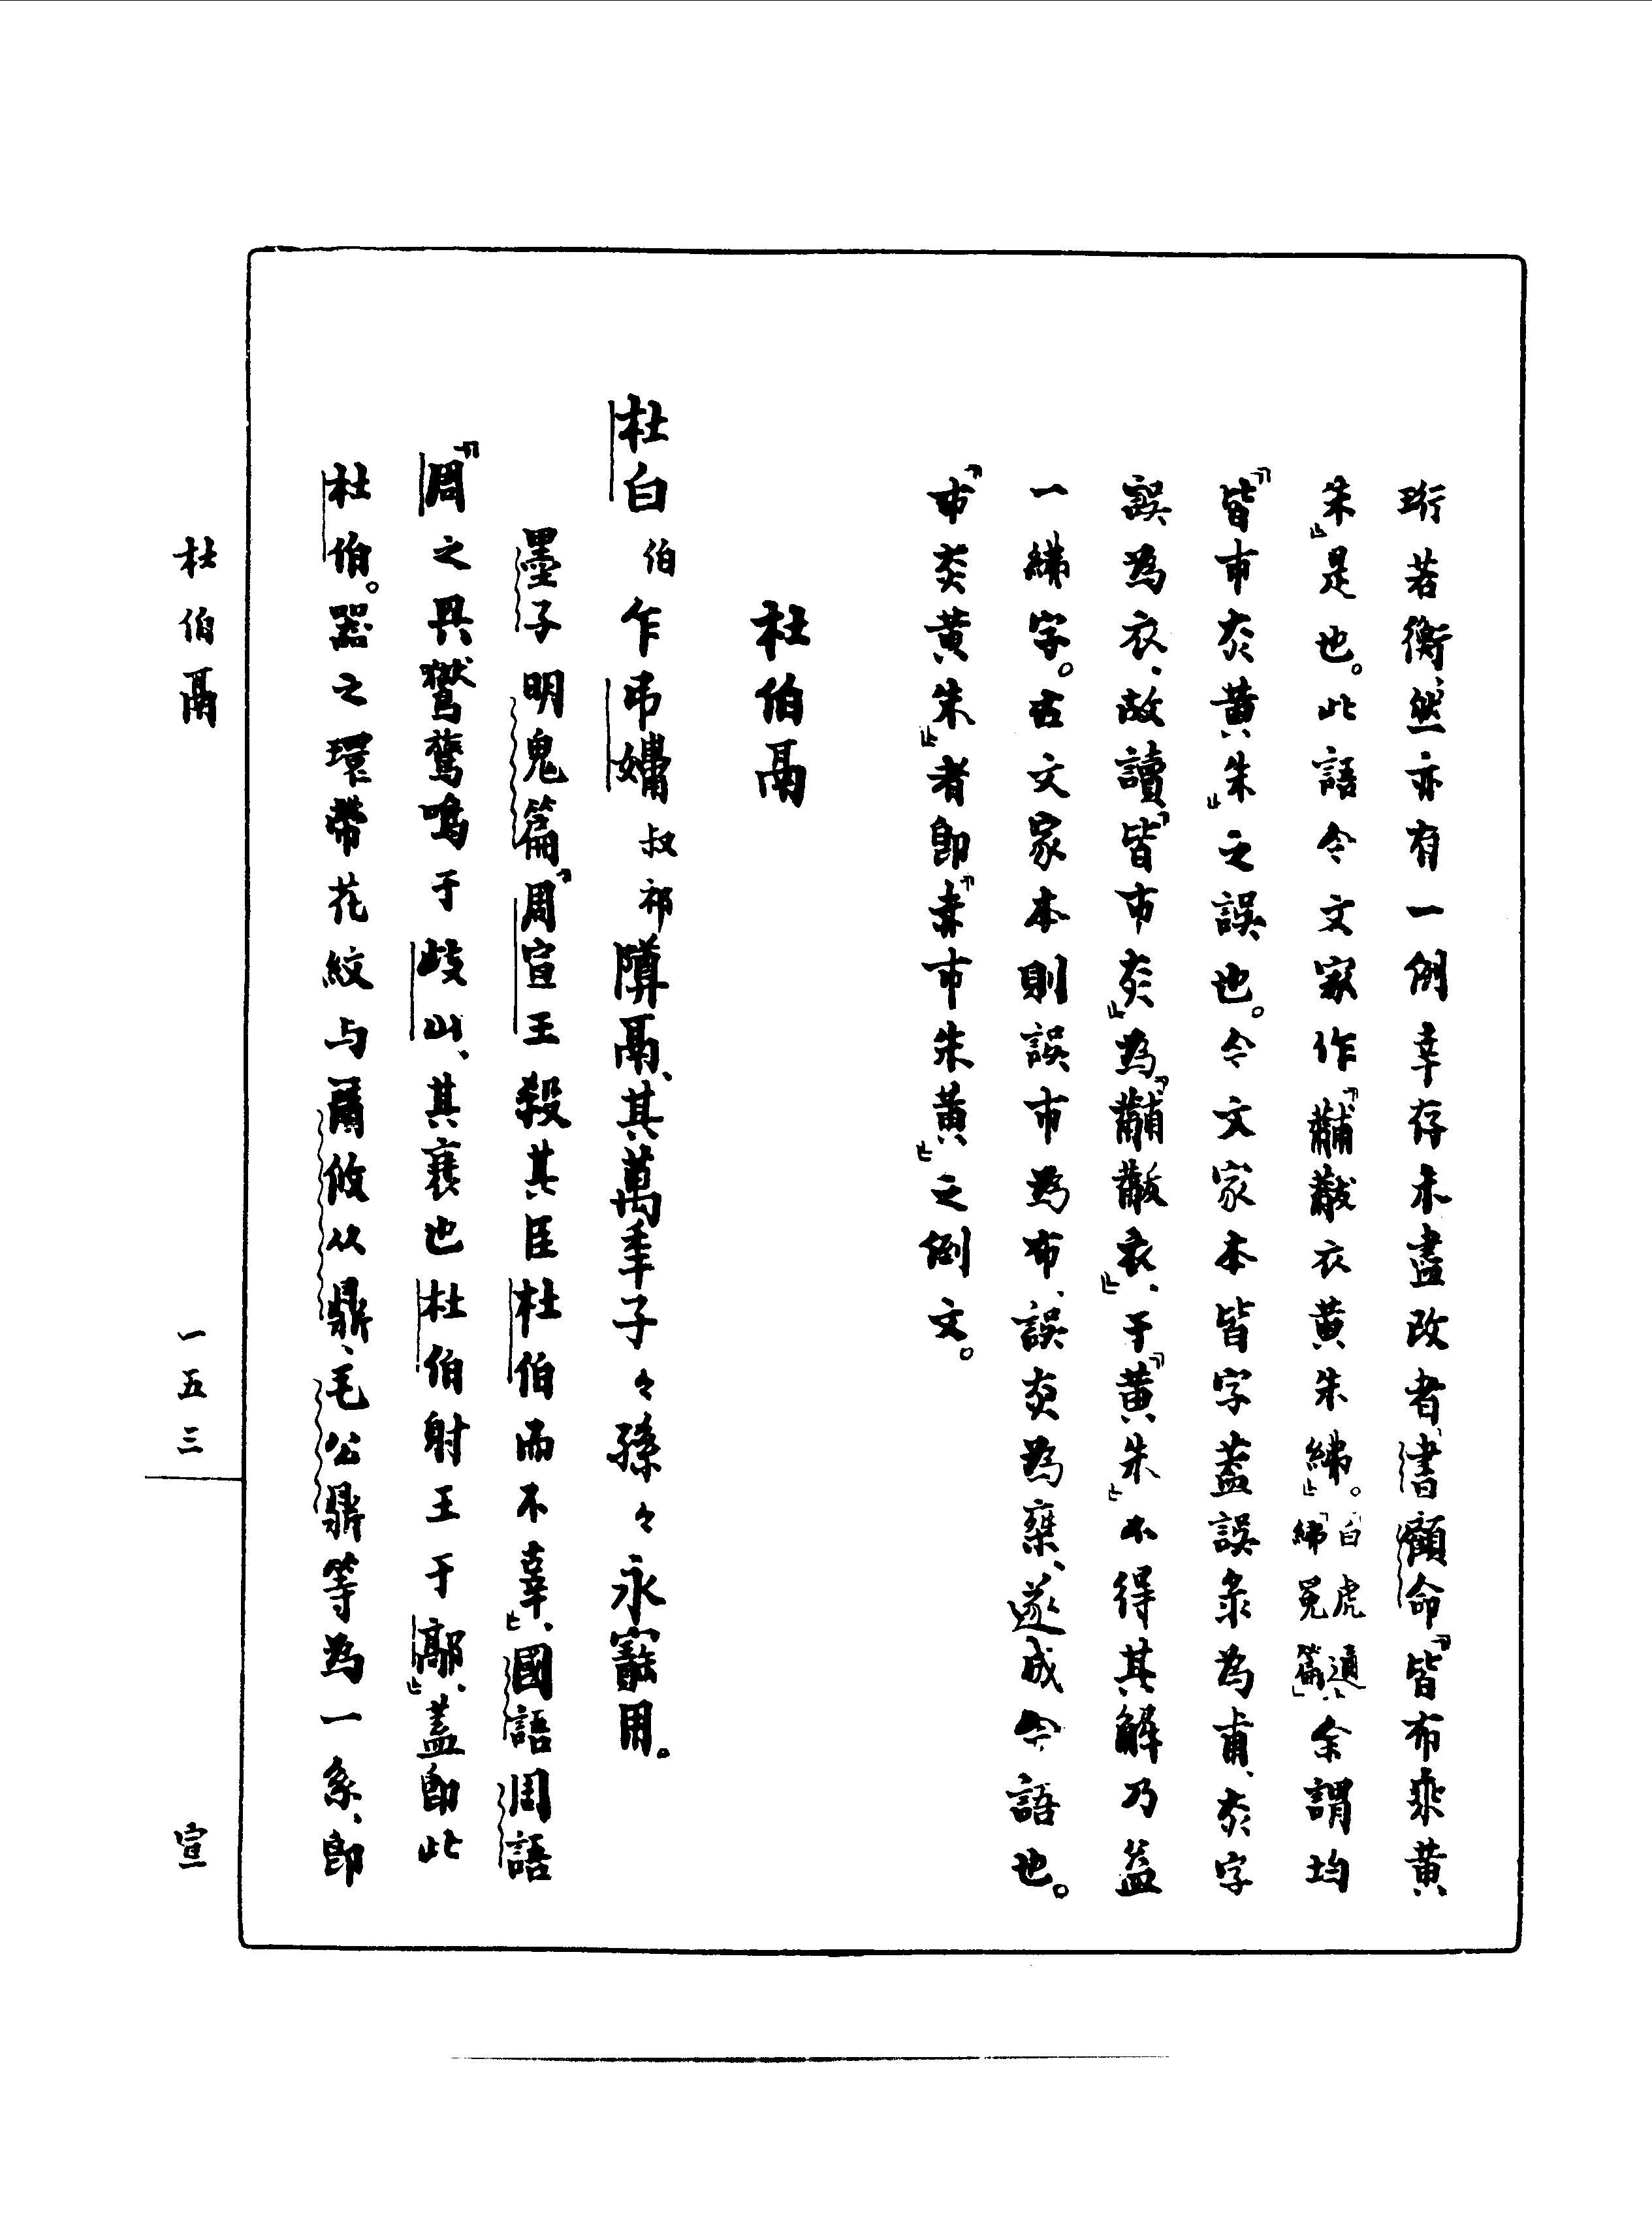 珩若衡、然亦有一例幸存未盡改者、書顧命「皆布乘黄
朱」是也。此語今文家作「黼黻衣黄朱紼」。「白虎通、紼冕篇」、余謂均
「皆巿㶣黄朱」之誤也。今文家本皆字蓋誤彔為甫、㶣字
誤為衣、故讀「皆巿㶣」為「黼黻衣」、于「黄朱」不得其解乃益
一紼字。古文家本則誤巿為布、誤㶣為椉、遂成今語也。
「巿㶣黄朱」者即「赤巿朱黄」之例文。
杜伯鬲
杜白伯乍弔𡣪叔祁䵼鬲、其萬年子々孫々永寶用。
墨子明鬼篇「周宣王殺其臣杜伯而不辜」、國語周語
「周之興鸑鷟鳴于岐山、其衰也杜伯射王于鄗」、蓋即此
杜伯。器之環帶花紋与爾攸从鼎、毛公鼎等為一系、即
杜伯鬲
一五三
宣